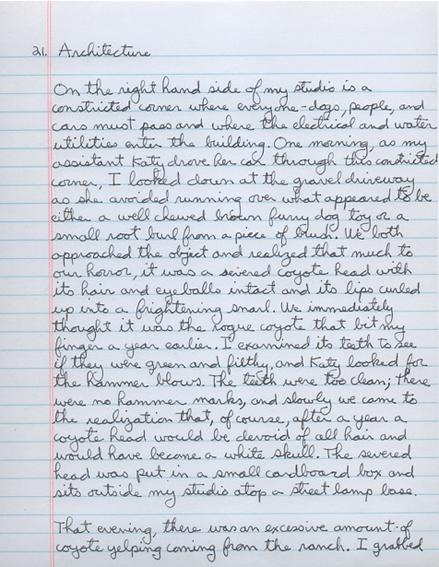 21. Architecture
On the right hand side of my studio is a
constricted corner where everyone-dogs, people, and
cars must pass and where the electrical and water
utilities enter the building. One morning, as my
assistant Katy drove her car through this constricted
corner, I looked down at the gravel driveway
as she avoided running over what appeared to be
either a well chewed brown furry dog toy or a
small root burl from a piece of brush. We both
approached the object and realized that much to
our horror, it was a severed coyote head with
its hair and eyeballs intact and its lips curled
up into a frightening snarl. We immediately
thought it was the rogue coyote that bit my
finger a year earlier. I examined its teeth to see
if they were green and filthy, and Katy looked for
the hammer blows. The teeth were too clean; there
were no hammer marks, and slowly we came to
the realization that, of course, after a year a
coyote head would be devoid of all hair and
would have become a white skull. The severed
head was put in a small cardboard box and
sits outside my studio atop a street lamp base.
That evening, there was an excessive amount of
coyote yelping coming from the ranch. I grabbed